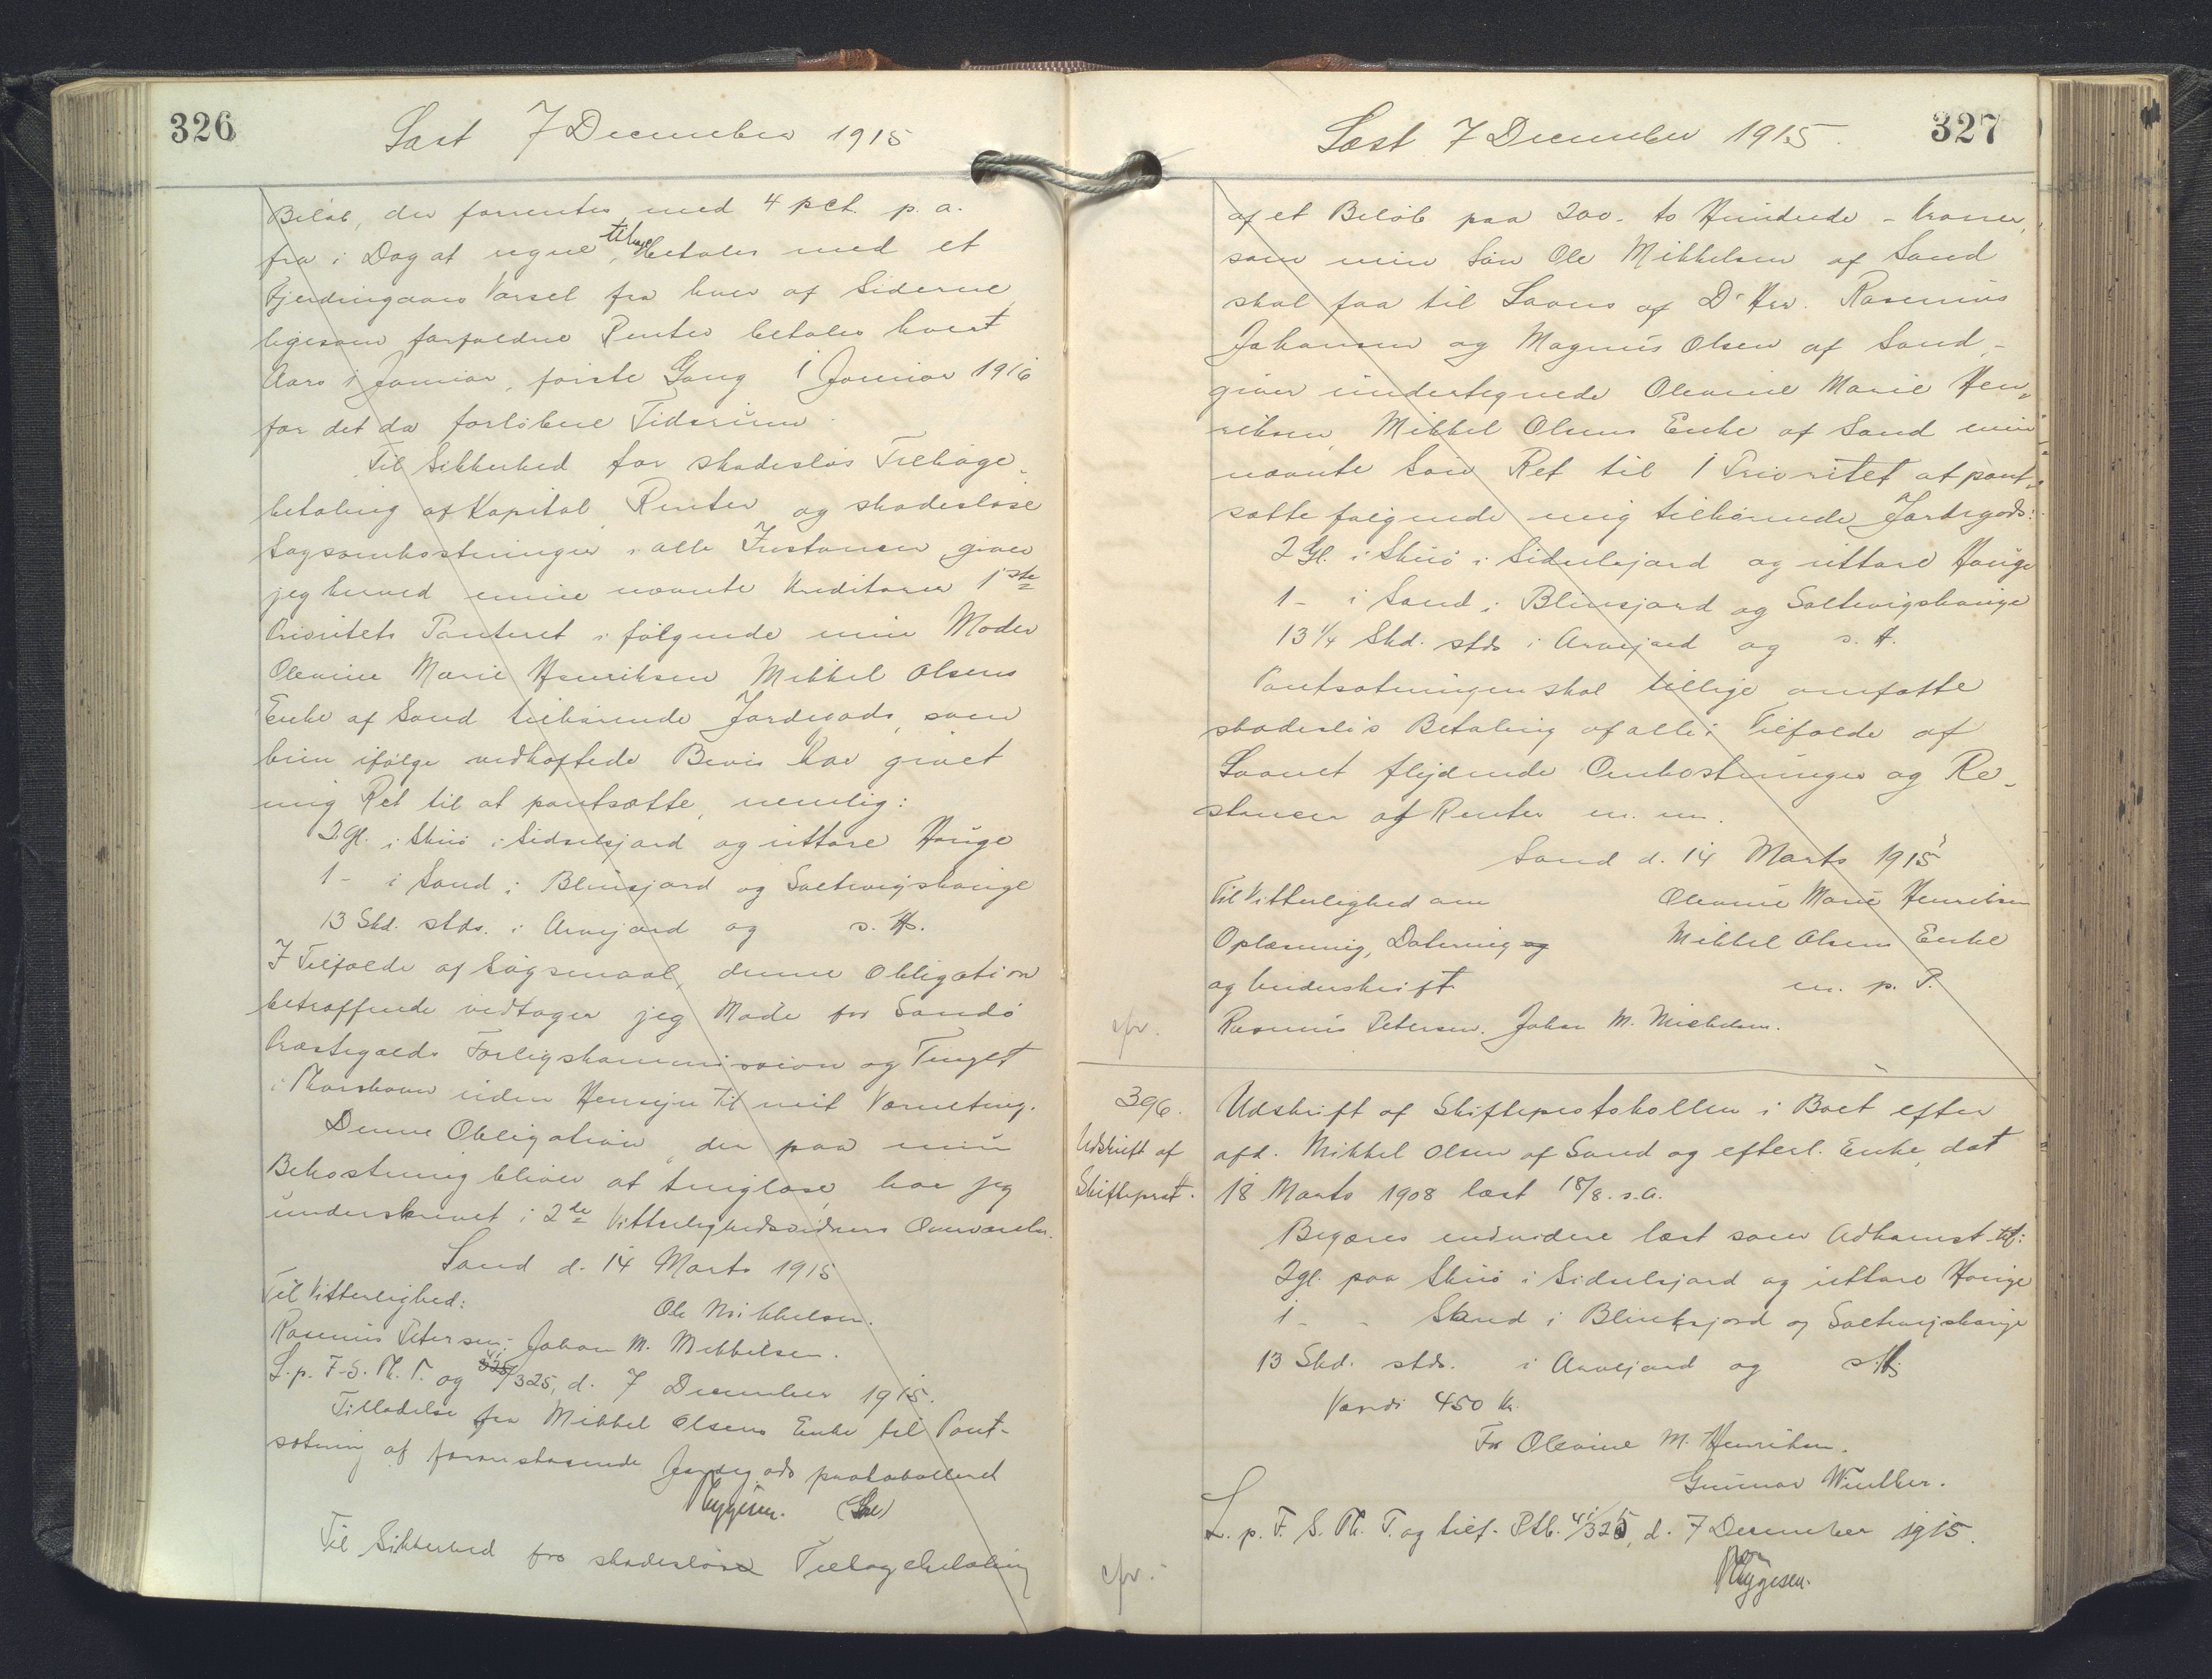 326
Læst 7 December 1915
Beløb, der forrentes med 4 pct. p. a.
fra i Dag at regne, tilbagebetales med et
Fjerdingaars Varsel fra hver af Siderne
ligesom forfaldne Renter betales hvert
Aars 1 Januar, første Gang 1 Januar 1916
for det da forløbne Tidsrum.
Til Sikkerhed for skadesløs Tilbage-
betaling af Kapital, Renter og skadesløse
Sagsomkostninger i alle Instanser giver
jeg herved mine nævnte Kreditorer 1ste
Prioritets Panteret i følgende min Moder
Olevine Marie Henriksen Mikkel Olsens
Enke af Sand tilhørende Jordegods, som
hun ifølge vedhæftede Bevis har givet
mig Ret til at pantsætte, nemlig:
2 Gl. i Skuø i Sidselsjord og uttare Hauge
1 - i Sand i Blinsjord og Saltvigshauge
13 Skd. stds. i Arvejord og s. H.
I Tilfælde af Søgsmaal, denne Obligation
betræffende vedtager jeg Møde for Sandø
Præstegælds Forligskommission og Tinget
i Thorshavn uden Hensyn til mit Værneting.
Denne Obligation, der paa min
Bekostning bliver at tinglæse, har jeg
underskrevet i 2de Vitterlighedsvidners Overværelse.
Sand d. 14 Marts 1915
Til Vitterlighed: Ole Mikkelsen.
Rasmus Petersen. Johan M. Mikkelsen.
L. p. F. S. Th. T. og 41/325, d. 7 December 1915.
Tilladelse fra Mikkel Olsens Enke til Pant-
sætning af foranstaaende Jordegods protokolleret
Ryggesen.
Til Sikkerhed for skadesløse Tilbagebetaling
327
Læst 7 December 1915.
af et Beløb paa 200 - to Hundrede - Kroner,
som min Søn Ole Mikkelsen af Sand
skal faa til Laans af Dr Hrr. Rasmus
Johansen og Magnus Olsen af Sand, -
giver undertegnede Olevine Marie Hen-
riksen, Mikkel Olsens Enke af Sand min
nævnte Søn Ret til 1 Prioritet at pant-
sætte følgende mig tilhørende Jordegods:
2 Gl. i Skuø i Sidselsjord og uttare Hauge
1 - i Sand i Blinsjord og Saltvigshauge
13 1/4 Skd. stds i Arvejord og s. H.
Pantsætningen skal tillige omfatte
skadesløs Betaling af alle i Tilfælde af
Laanet flydende Omkostninger og Re-
stancer af Renter m. m.
Sand d. 14 Marts 1915
Til Vitterlighed om Olevine Marie Henriksen
Oplæsning, Datering og Mikkel Olsens Enke
og Underskrift m. p. P.
Rasmus Petersen. Johan M. Mickelsen.
cfr.
396.
Udskrift af
Skifteprot.
Udskrift af Skifteprotokollen i Boet efter
afd. Mikkel Olsen af Sand og efterl. Enke, dat
18 Marts 1908 læst 18/8. s.A.
Begæres endvidere læst som Adkomst til:
2 gl. paa Skuø i Sidselsjord og uttare Hauge
1 - - Sand i Blinksjord og Saltvigshauge
13 Skd. stds. i Arvejord og s. H.
Værdi 450 Kr.
For Olevine M. Henriksen.
Gunnar Winther.
L. p. F. S. Th. T. og tilf. Ptb. 41/325, d. 7 December 1915.
Ryggesen.
cfr.